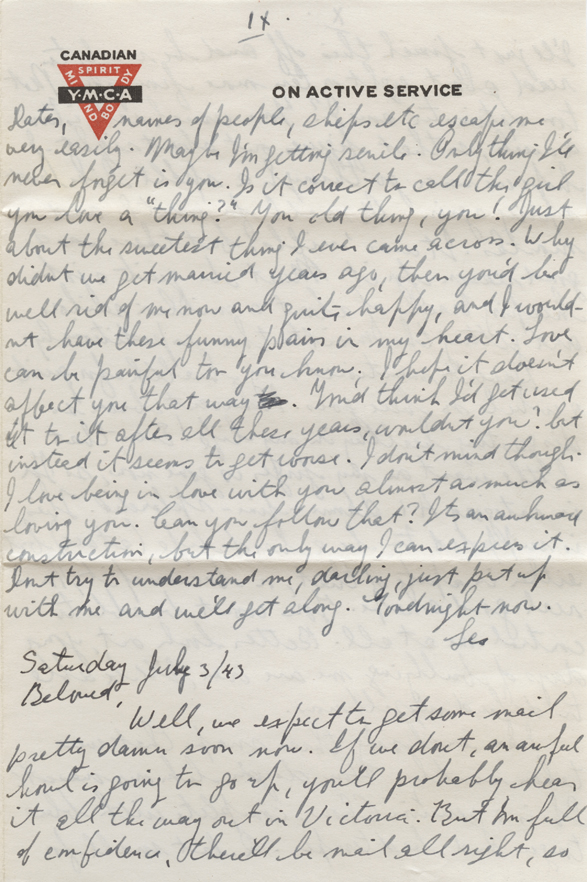 IX.
CANADIAN
SPIRIT
MIND
BODY
Y·M·C·A
ON ACTIVE SERVICE
Dates, names of people, ships etc escape me
very easily. Maybe I'm getting senile. Only thing I'll
never forget is you. Is it correct to call the girl
you love a "thing?" You old thing, you! Just
about the sweetest thing I ever came across. Why
didnt we get married years ago, then you'd be
well rid of me now and quite happy, and I would-
nt have these funny pains in my heart. Love
can be painful too you know, I hope it doesn't
affect you that way. You'd think I'd get used
to it after all these years, wouldnt you? but
instead it seems to get worse. I don't mind though.
I love being in love with you almost as much as
loving you. Can you follow that? Its an awkward
construction, but the only way I can express it.
Dont try to understand me, darling, just put up
with me and we'll get along. Goodnight now.
Les
Saturday July 3/43
Beloved,
Well, we expect to get some mail
pretty damn soon now. If we dont, an awful
howl is going to go up, you'll probably hear
it all the way out in Victoria. But I'm full
of confidence, there'll be mail all right, so